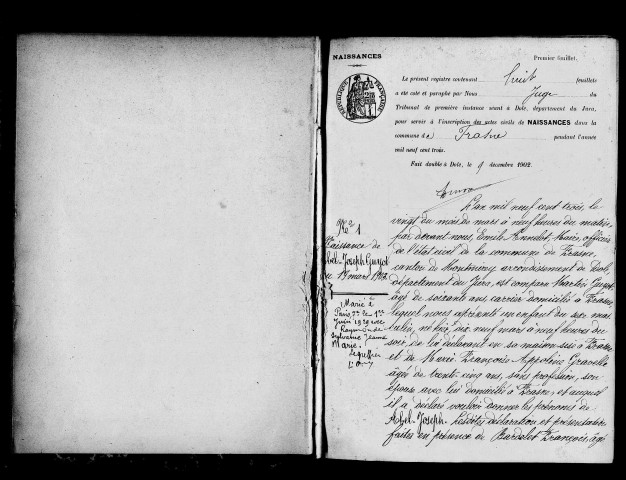 NAISSANCES
Premier feuillet.
RÉPUBLIQUE FRANÇAISE
Le présent registre contenant huit feuillets
a été coté et paraphé par Nous Juge du
Tribunal de première instance séant à Dole, département du Jura,
pour servir à l'inscription des actes civils de NAISSANCES dans la
commune de Frasne pendant l'année
mil neuf cent trois.
Fait double à Dole, le 9 décembre 1902.
N° 1
Naissance de
Abel-Joseph Guyot
du 19 mars
Marié à
Paris le 1er
juin 1929 avec
Raymonde
Sylvanie Jeanne
Marie
L'an mil neuf cent trois, le
vingt du mois de mars à neuf heures du matin,
par devant nous, Emile Maire, officier
de l'état civil de la commune de Frasne,
canton de Montmirey, arrondissement de Dole,
département du Jura, est comparu Guyot,
âgé de soixante ans, carrier domicilié à Frasne,
lequel nous a présenté un enfant du sexe mas
culin, né hier, dix neuf mars à neuf heures du
soir, de lui déclarant en sa maison sise à Frasne
et de Marie Françoise Appoline Gravelle
âgée de trente cinq ans, sans profession, son
épouse avec lui domiciliée à Frasne, et auquel
il a déclaré vouloir donner les prénoms de
Abel-Joseph. Lesdites déclaration et présentation
faites en présence de Bardolet François, âgé